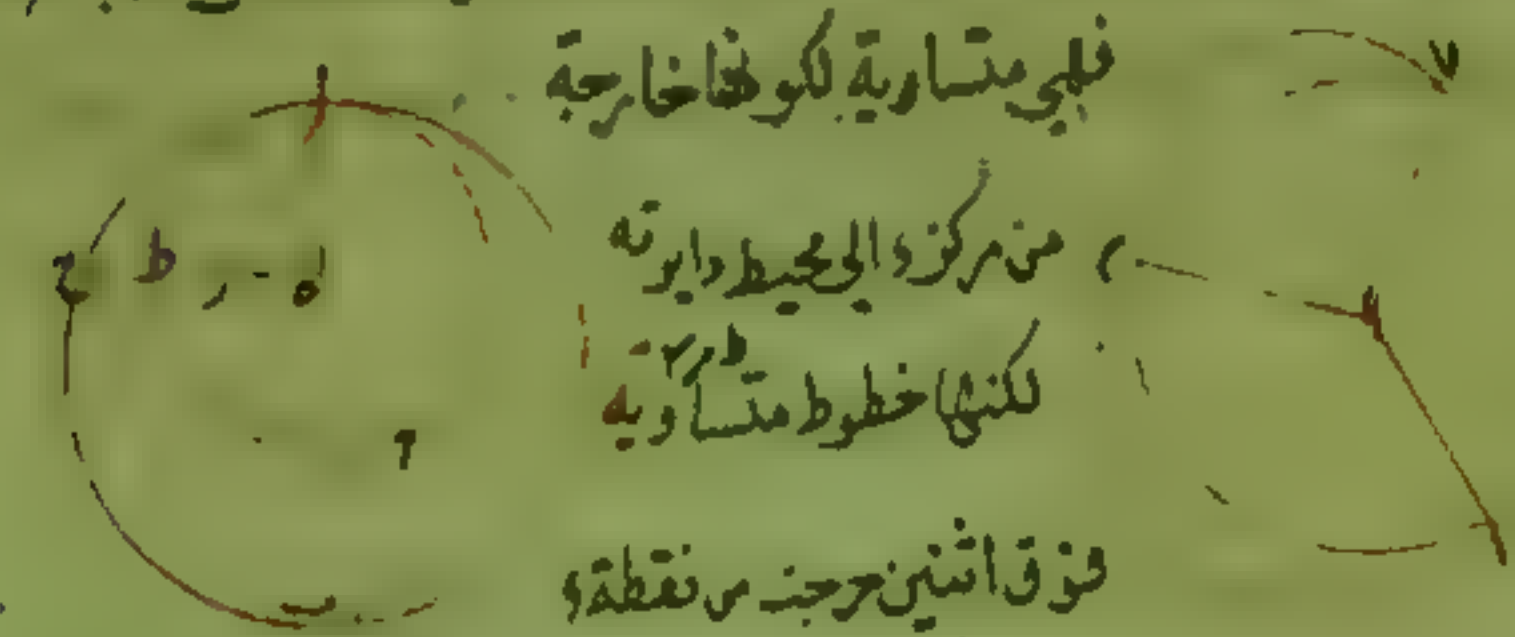 فهي متساوية لكونها خارجة
من مركزه الى محيط دايرته
لكنها خطوط متساويه
فوق اثنين خرجت من نقطة ء
ا
ح ط ر ه
ب